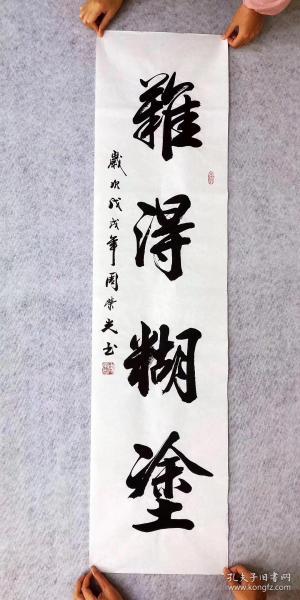 難得糊塗
歲次戊戌年周榮光书
孔夫子旧书网
www.kongfz.com